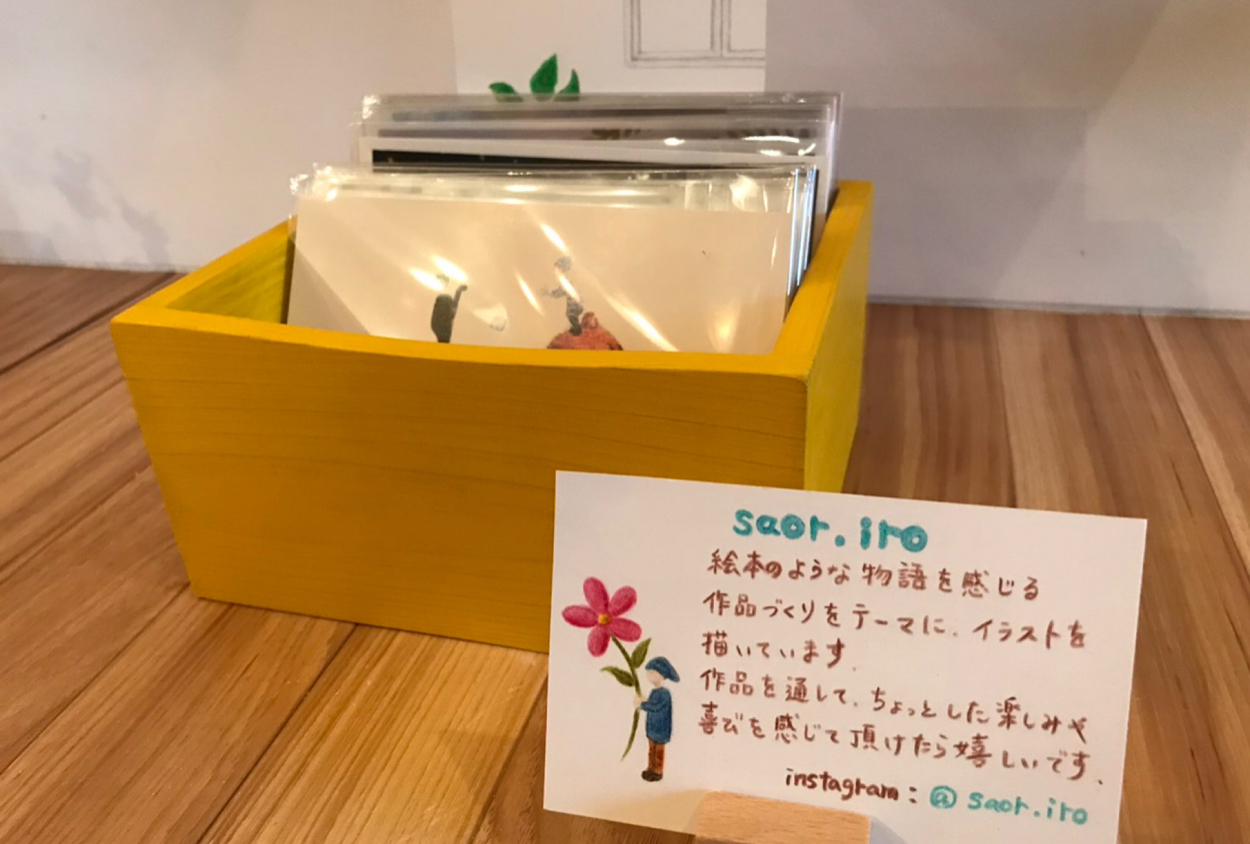 saor.iro
絵本のような物語を感じる
作品づくりをテーマに、イラストを
描いています。
作品を通して、ちょっとした楽しみや
喜びを感じて頂けたら嬉しいです。
instagram : @ saor.iro